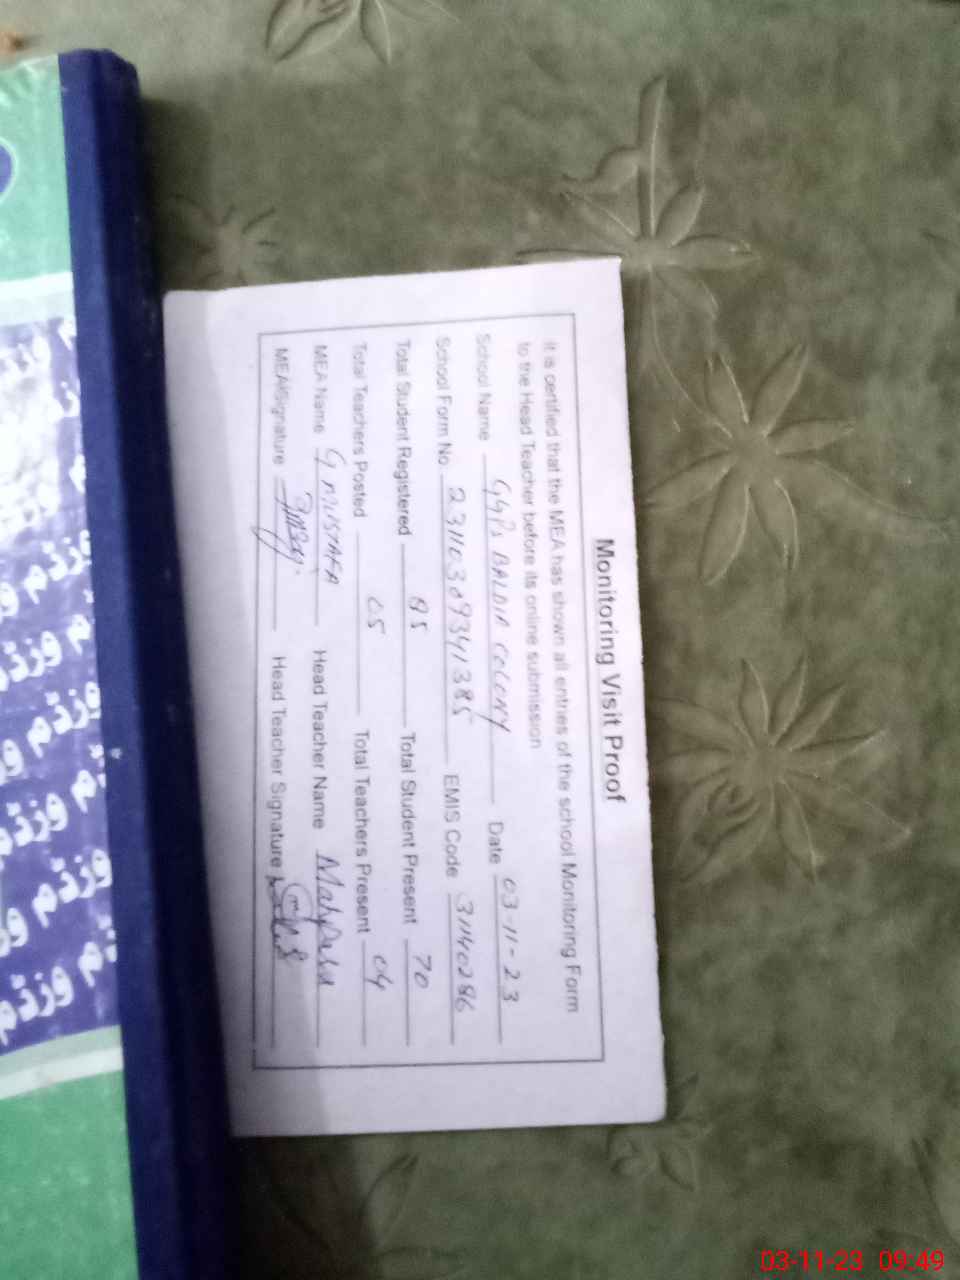 Monitoring Visit Proof
It is certified that the MEA has shown all entries of the school Monitoring Form
to the Head Teacher before its online submission
School Name GGPS BALDIA COLONY Date 03-11-23
School Form No 23110309341385 EMIS Code 31140286
Total Student Registered 85 Total Student Present 70
Total Teachers Posted 05 Total Teachers Present 04
MEA Name G MUSTAFA Head Teacher Name
MEA Signature Head Teacher Signature
03-11-23 09:49